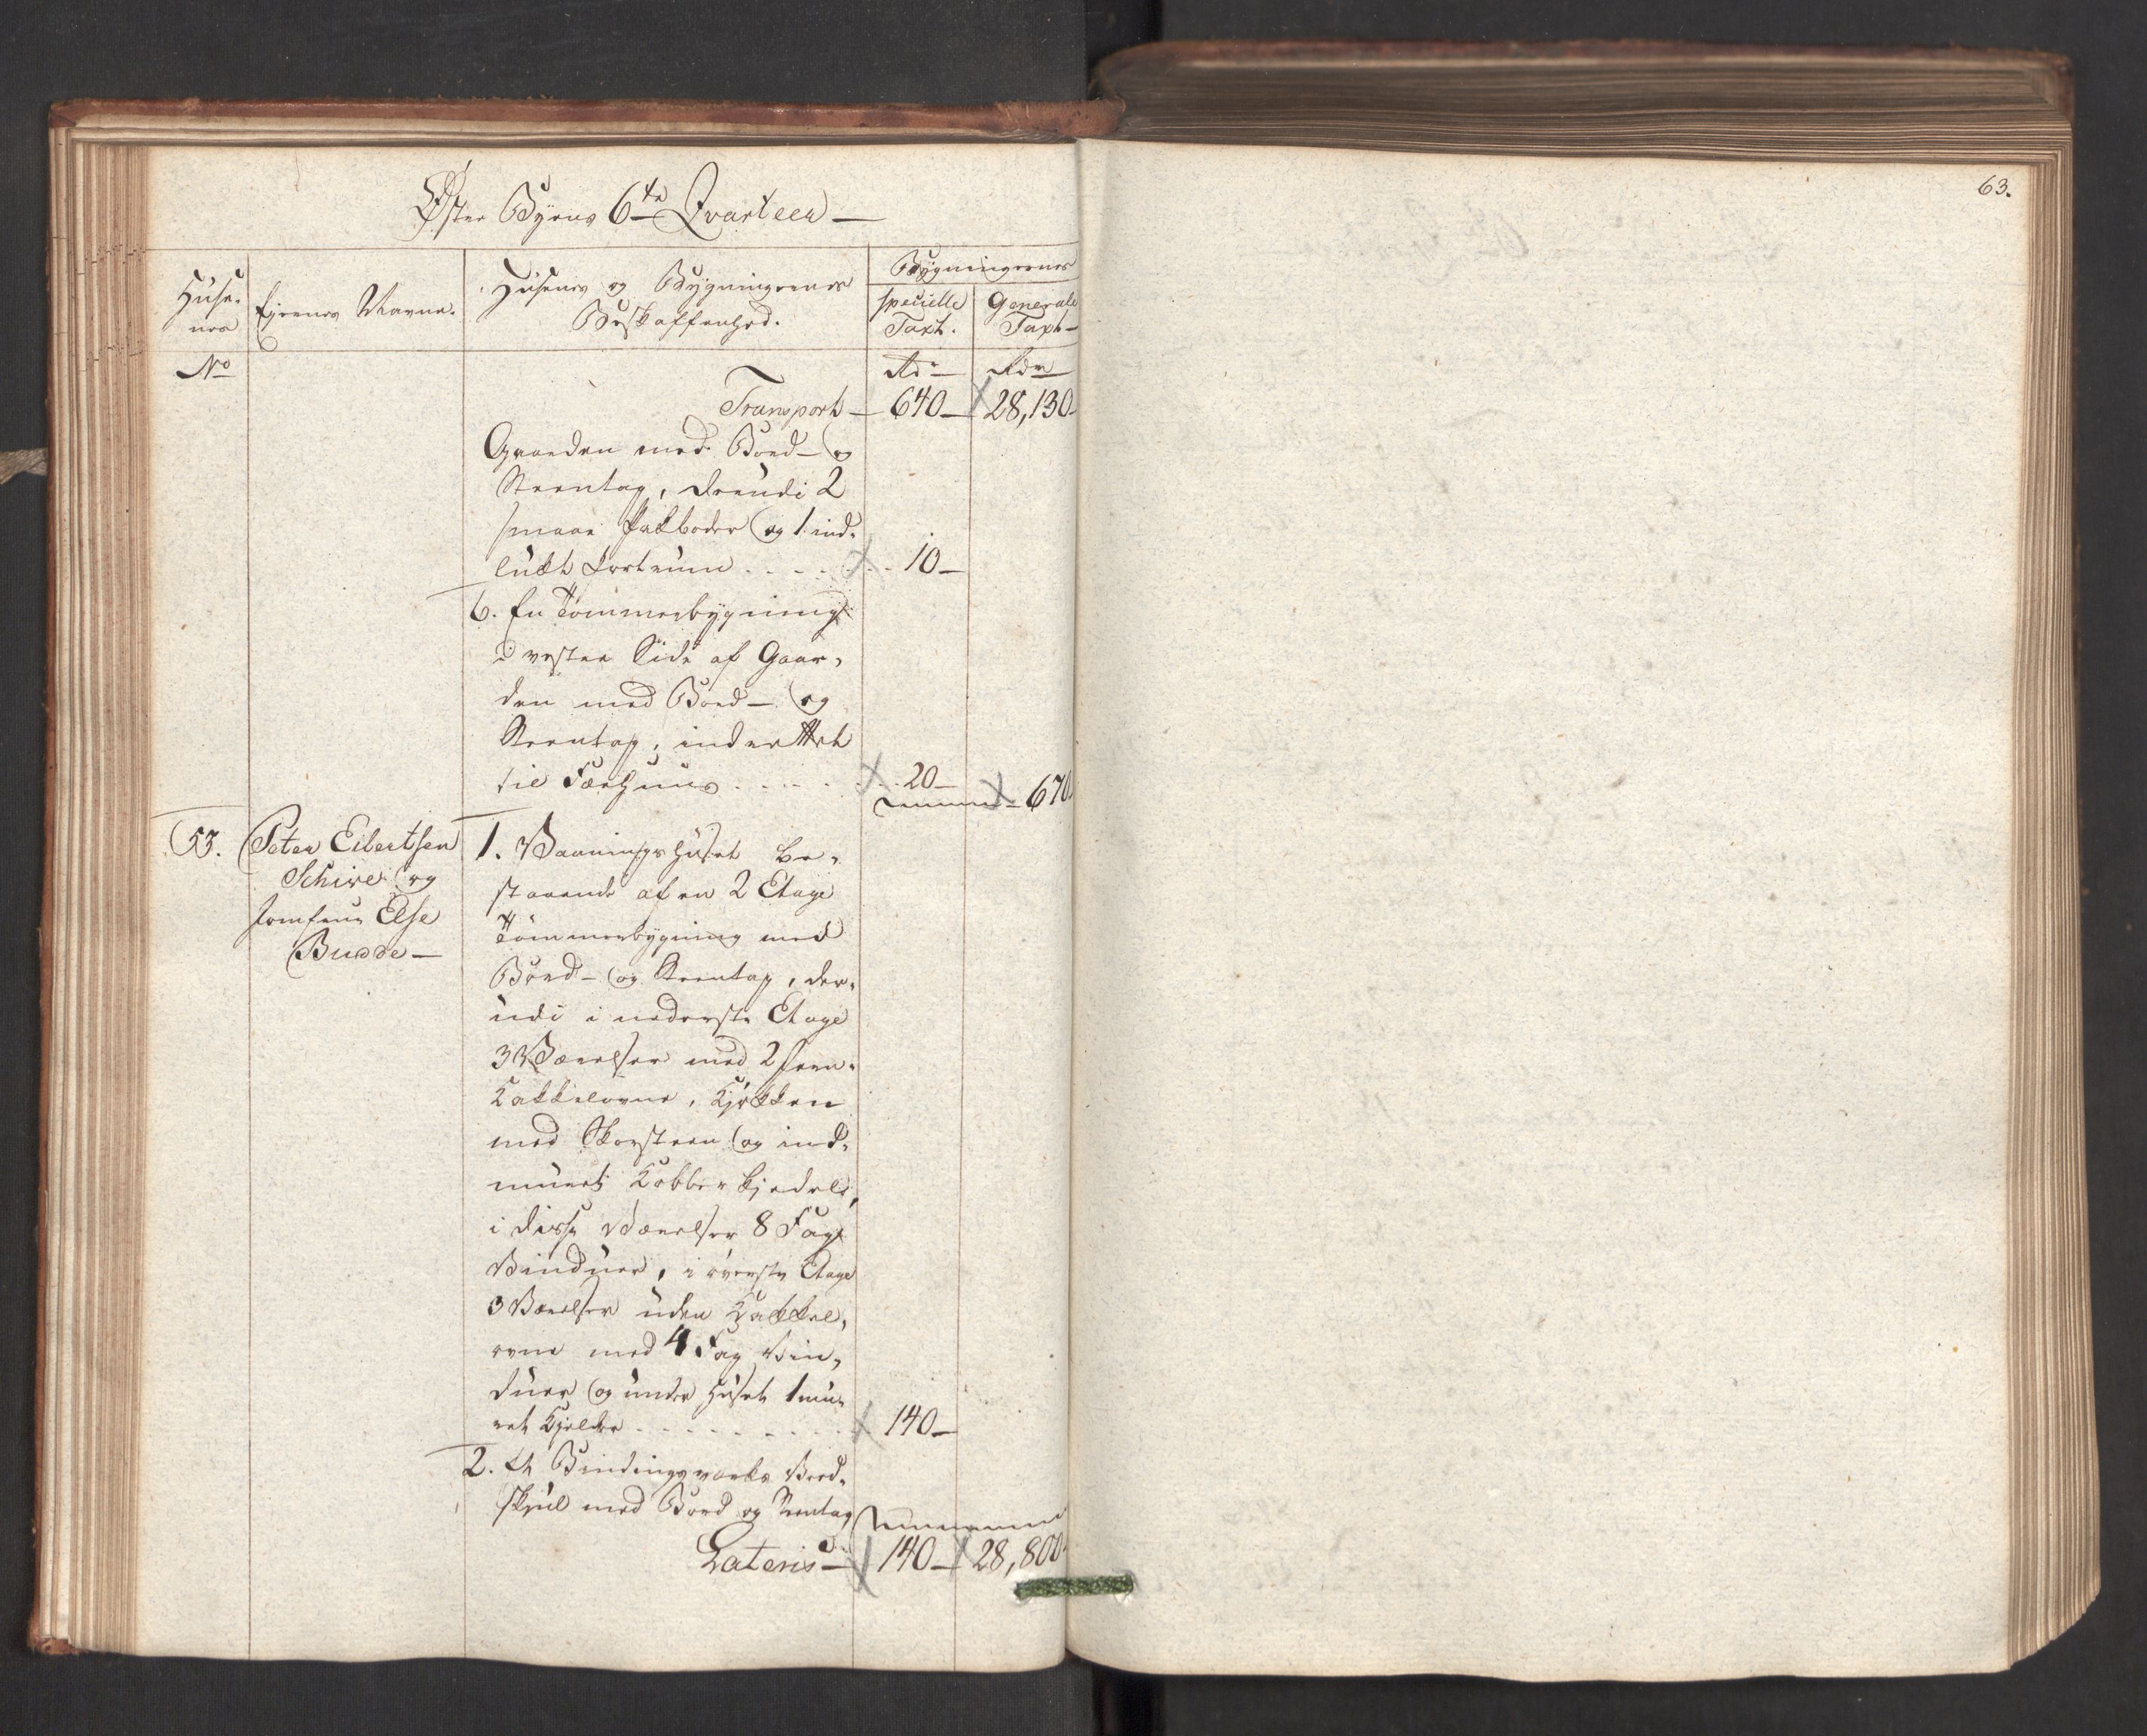 63.
Øster Byens 6te Qvarteer
Huse-
nes
Ejernes Navne.
Husenes og Bygningernes
Beskaffenhed.
Bygningernes
specielle
Taxt.
Generale
Taxt
No
Rdr
Rdr
Transport 640 28,130
Gaarden med Bord- og
Steentag, derudi 2
smaae Pakboder og 1 ind-
lukt
10
6. En Tömmerbygning
i vester Side af Gaar-
den med Bord- og
Steentag, indrettet
til Fæehuus
20 670
53. Peter Eilertsen
Schive og
Jomfrue Else
Budde
1. Vaaningshuset be-
staaende af en 2 Etage
Tömmerbygning med
Bord- og Steentag, der-
udi i nederste Etage
3 Værelser med 2 Jern-
Kakkelovne, Kjøkken
med Skorsteen og ind-
muret Kobberkjedel,
i disse Værelser 8 Fag
Vinduer, i øverste Etage
3 Værelser uden Kakkel-
ovne med 4 Fag Vin-
duer og under Huset 1 mu-
ret Kjelder
140
2. Et Bindingsverks Ved-
skjul med Bord og Steentag
Lateris 140 28,800